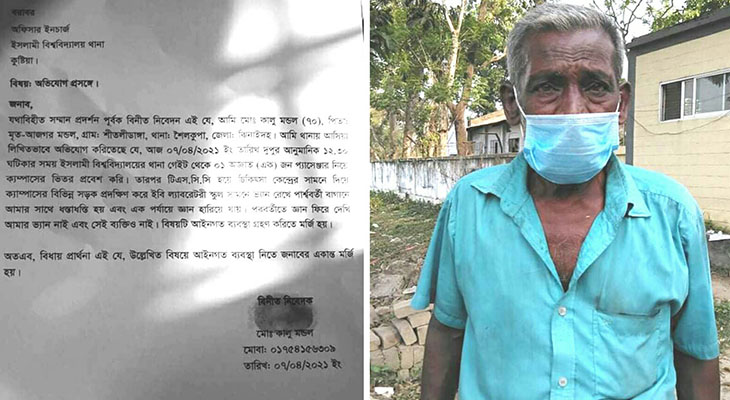 বরাবর
অফিসার ইনচার্জ
ইসলামী বিশ্ববিদ্যালয় থানা
কুষ্টিয়া।
বিষয়: অভিযোগ প্রসঙ্গে।
জনাব,
যথাবিহীত সম্মান প্রদর্শন পূর্বক বিনীত নিবেদন এই যে, আমি মোঃ কালু মন্ডল (৭০), পিতাঃ
মৃত-আজগর মন্ডল, গ্রাম: শীতলীডাঙ্গা, থানা: শৈলকুপা, জেলা: ঝিনাইদহ। আমি থানায় আসিয়া
লিখিতভাবে অভিযোগ করিতেছে যে, আজ ০৭/০৪/২০২১ ইং তারিখ দুপুর আনুমানিক ১২.৩০
ঘটিকার সময় ইসলামী বিশ্ববিদ্যালয়ের থানা গেইট থেকে ০১ অজ্ঞাত (এক) জন প্যাসেঞ্জার নিয়ে
ক্যাম্পাসের ভিতর প্রবেশ করি। তারপর টিএস.সি.সি হয়ে চিকিৎসা কেন্দ্রের সামনে দিয়ে
ক্যাম্পাসের বিভিন্ন সড়ক প্রদক্ষিণ করে ইবি ল্যাবরেটরী স্কুল সামনে ভ্যান রেখে পার্শ্ববর্তী বাগানে
আমার সাথে ধস্তাধস্তি হয় এবং এক পর্যায়ে জ্ঞান হারিয়ে যায়। পরবর্তীতে জ্ঞান ফিরে দেখি
আমার ভ্যান নাই এবং সেই ব্যক্তিও নাই। বিষয়টি আইনগত ব্যবস্থা গ্রহণ করিতে মর্জি হয়।
অতএব, বিধায় প্রার্থনা এই যে, উল্লেখিত বিষয়ে আইনগত ব্যবস্থা নিতে জনাবের একান্ত মর্জি
হয়।
বিনীত নিবেদক
মোঃ কালু মন্ডল
মোবা: ০১৭৫৪১৫৬৩০৯
তারিখ: ০৭/০৪/২০২১ ইং